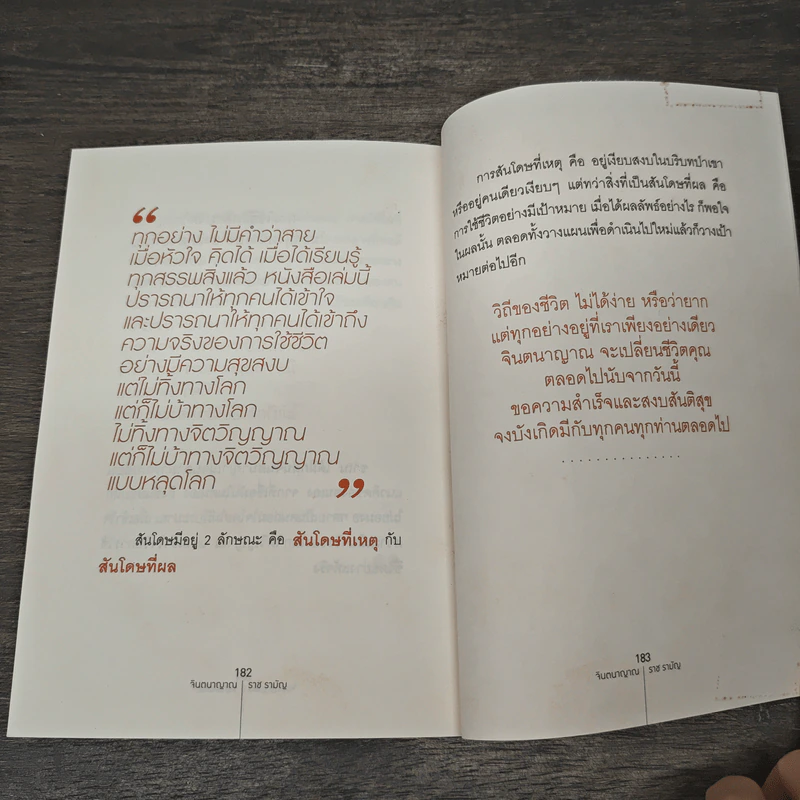 “
ทุกอย่าง ไม่มีคำว่าสาย
เมื่อหัวใจ คิดได้ เมื่อได้เรียนรู้
ทุกสรรพสิ่งแล้ว หนังสือเล่มนี้
ปรารถนาให้ทุกคนได้เข้าใจ
และปรารถนาให้ทุกคนได้เข้าถึง
ความจริงของการใช้ชีวิต
อย่างมีความสุขสงบ
แต่ไม่ทิ้งทางโลก
แต่ก็ไม่บ้าทางโลก
ไม่ทิ้งทางจิตวิญญาณ
แต่ก็ไม่บ้าทางจิตวิญญาณ
แบบหลุดโลก ”
สันโดษมีอยู่ 2 ลักษณะ คือ สันโดษที่เหตุ กับ
สันโดษที่ผล
182
จินตนาญาณ | ราช รามัญ
การสันโดษที่เหตุ คือ อยู่เงียบสงบในบริบทป่าเขา
หรืออยู่คนเดียวเงียบๆ แต่ทว่าสิ่งที่เป็นสันโดษที่ผล คือ
การใช้ชีวิตอย่างมีเป้าหมาย เมื่อได้ผลลัพธ์อย่างไร ก็พอใจ
ในผลนั้น ตลอดทั้งวางแผนเพื่อดำเนินไปใหม่แล้วก็วางเป้า
หมายต่อไปอีก
วิถีของชีวิต ไม่ได้ง่าย หรือว่ายาก
แต่ทุกอย่างอยู่ที่เราเพียงอย่างเดียว
จินตนาญาณ จะเปลี่ยนชีวิตคุณ
ตลอดไปนับจากวันนี้
ขอความสำเร็จและสงบสันติสุข
จงบังเกิดมีกับทุกคนทุกท่านตลอดไป
. . . . . . . . . . . . . . .
183
จินตนาญาณ | ราช รามัญ